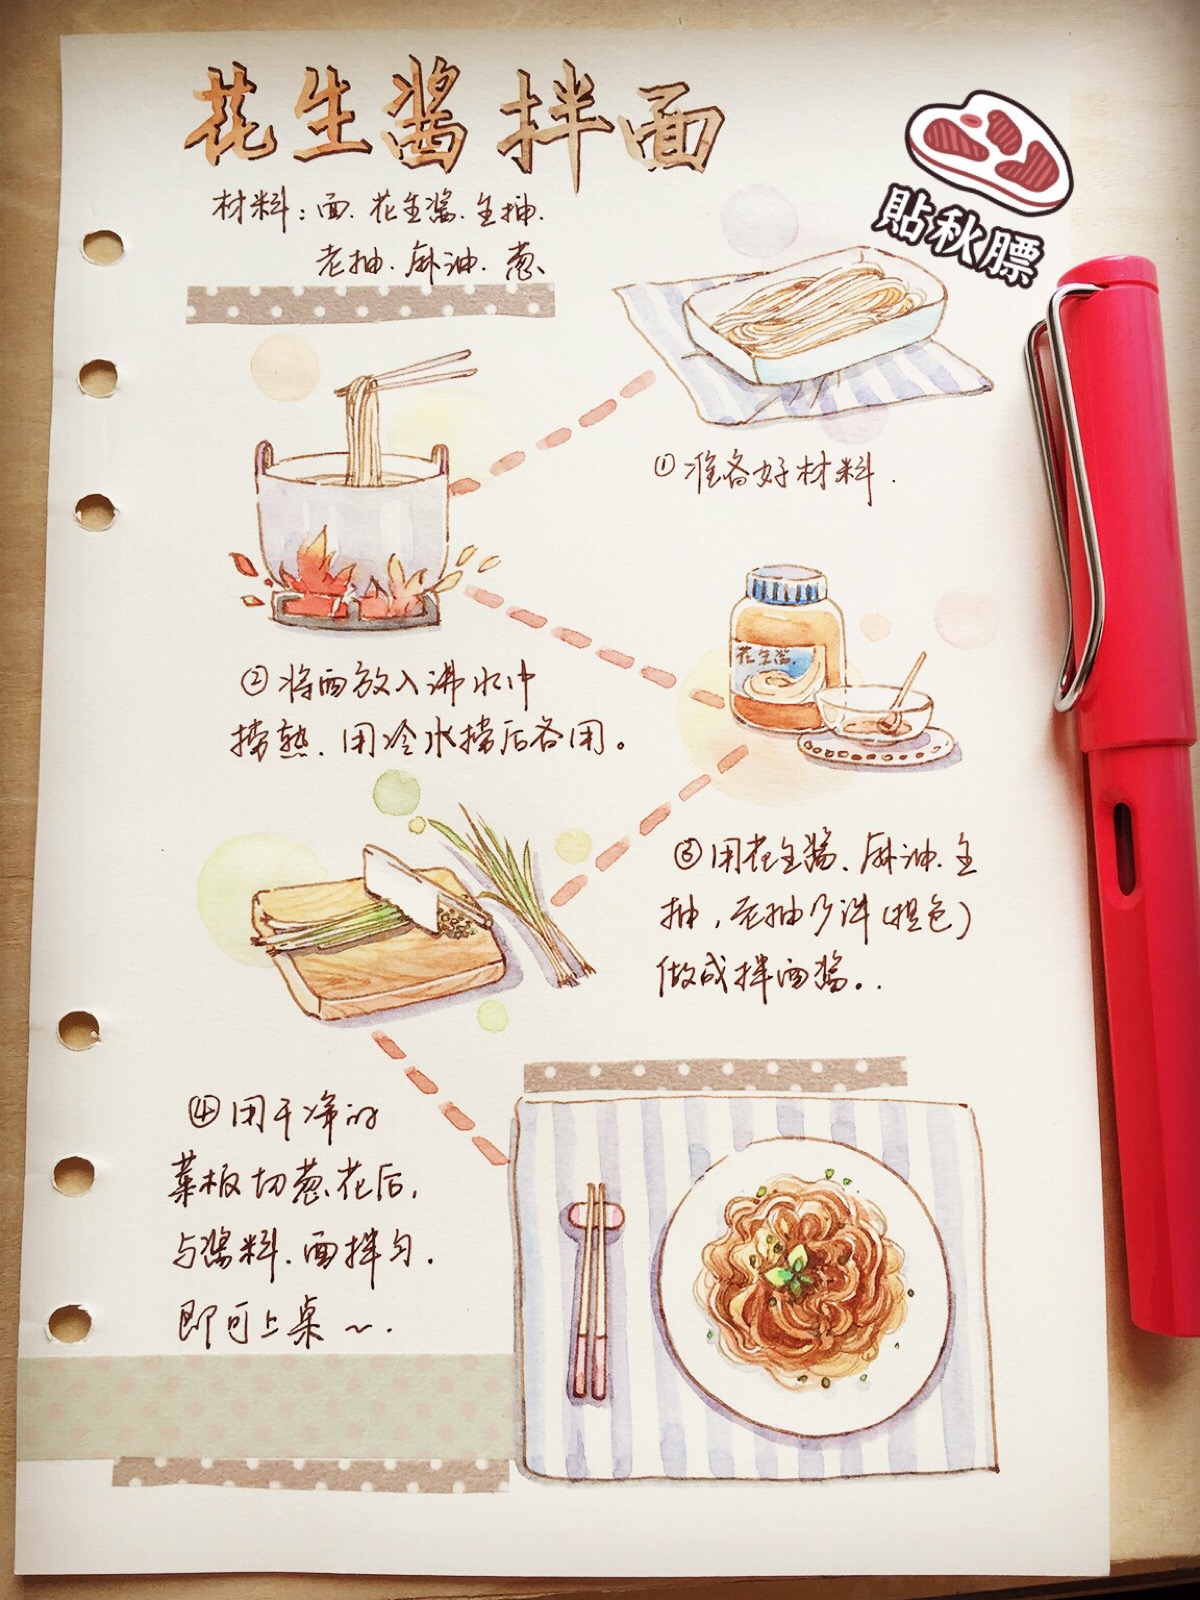 花生酱拌面
材料:面.花生酱.生抽.
老抽.麻油.葱、
貼秋膘
①准备好材料.
②将面放入沸水中
捞熟、用冷水捞后备用。
花生酱.
③用花生酱、麻油.生
抽,老抽少许(提色)
做成拌面酱。.
④用干净的
菜板切葱花后,
与酱料.面拌匀.
即可上桌~.